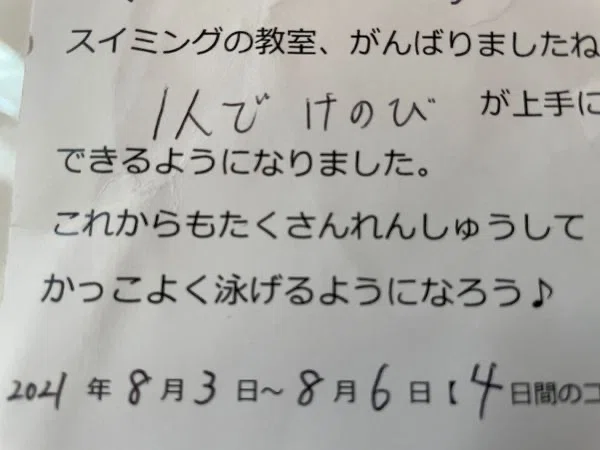 スイミングの教室、がんばりましたね
1人で けのび が上手に
できるようになりました。
これからもたくさんれんしゅうして
かっこよく泳げるようになろう♪
2021 年 8 月 3 日～ 8 月 6 日【 4 日間のコ